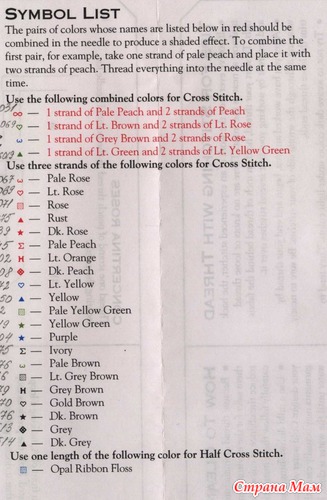 SYMBOL LIST
The pairs of colors whose names are listed below in red should be
combined in the needle to produce a shaded effect. To combine the
first pair, for example, take one strand of pale peach and place it with
two strands of peach. Thread everything into the needle at the same
time.
Use the following combined colors for Cross Stitch.
— 1 strand of Pale Peach and 2 strands of Peach
— 1 strand of Lt. Brown and 2 strands of Lt. Rose
— 1 strand of Grey Brown and 2 strands of Rose
— 1 strand of Lt. Green and 2 strands of Lt. Yellow Green
Use three strands of the following colors for Cross Stitch.
— Pale Rose
— Lt. Rose
— Rose
— Rust
— Dk. Rose
Σ — Pale Peach
H — Lt. Orange
— Dk. Peach
— Lt. Yellow
— Yellow
— Pale Yellow Green
— Yellow Green
— Purple
Σ — Ivory
— Pale Brown
— Lt. Grey Brown
H — Grey Brown
— Gold Brown
— Dk. Brown
— Grey
— Dk. Grey
Use one length of the following color for Half Cross Stitch.
— Opal Ribbon Floss
Страна Мам